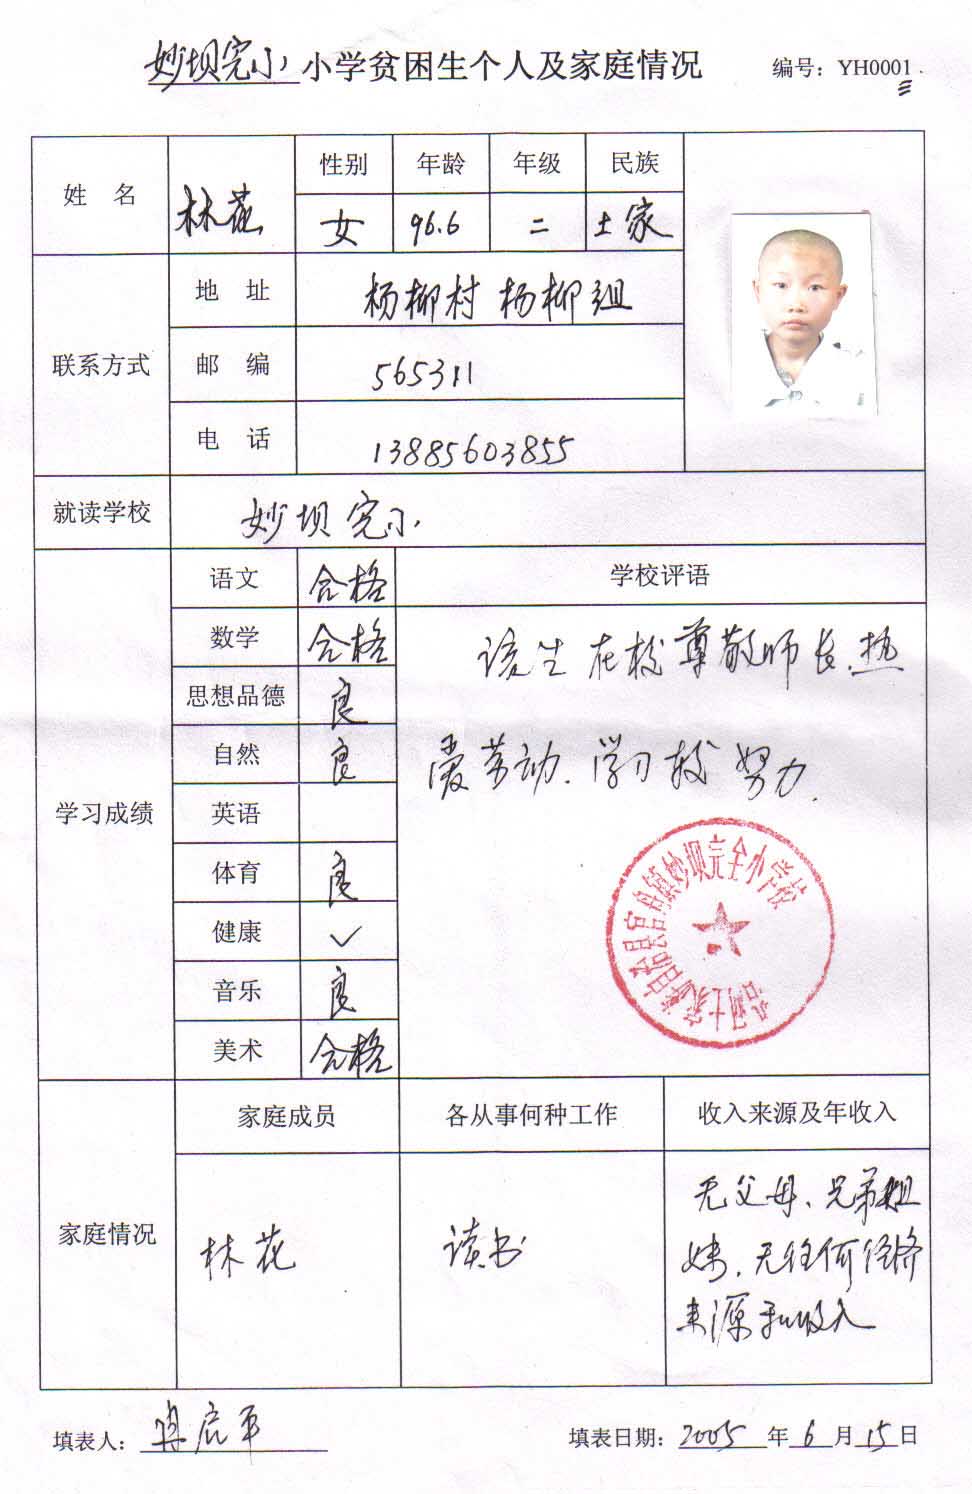 妙坝完小 小学贫困生个人及家庭情况 编号：YH0001
姓 名 林花 性别 年龄 年级 民族
女 96.6 二 土家
联系方式 地 址 杨柳村杨柳组
邮 编 565311
电 话 13885603855
就读学校 妙坝完小
学习成绩 语文 合格 学校评语
数学 合格 该生在校尊敬师长、热
思想品德 良
自然 良 爱劳动、学习较努力.
英语
体育 良
健康 ✓
音乐 良
美术 合格
自治县官舟镇妙坝完全小学校
家庭情况 家庭成员 各从事何种工作 收入来源及年收入
林花 读书 无父母、兄弟姐
妹，无任何经济
来源和收入
填表人： 启平 填表日期：2005年6月15日